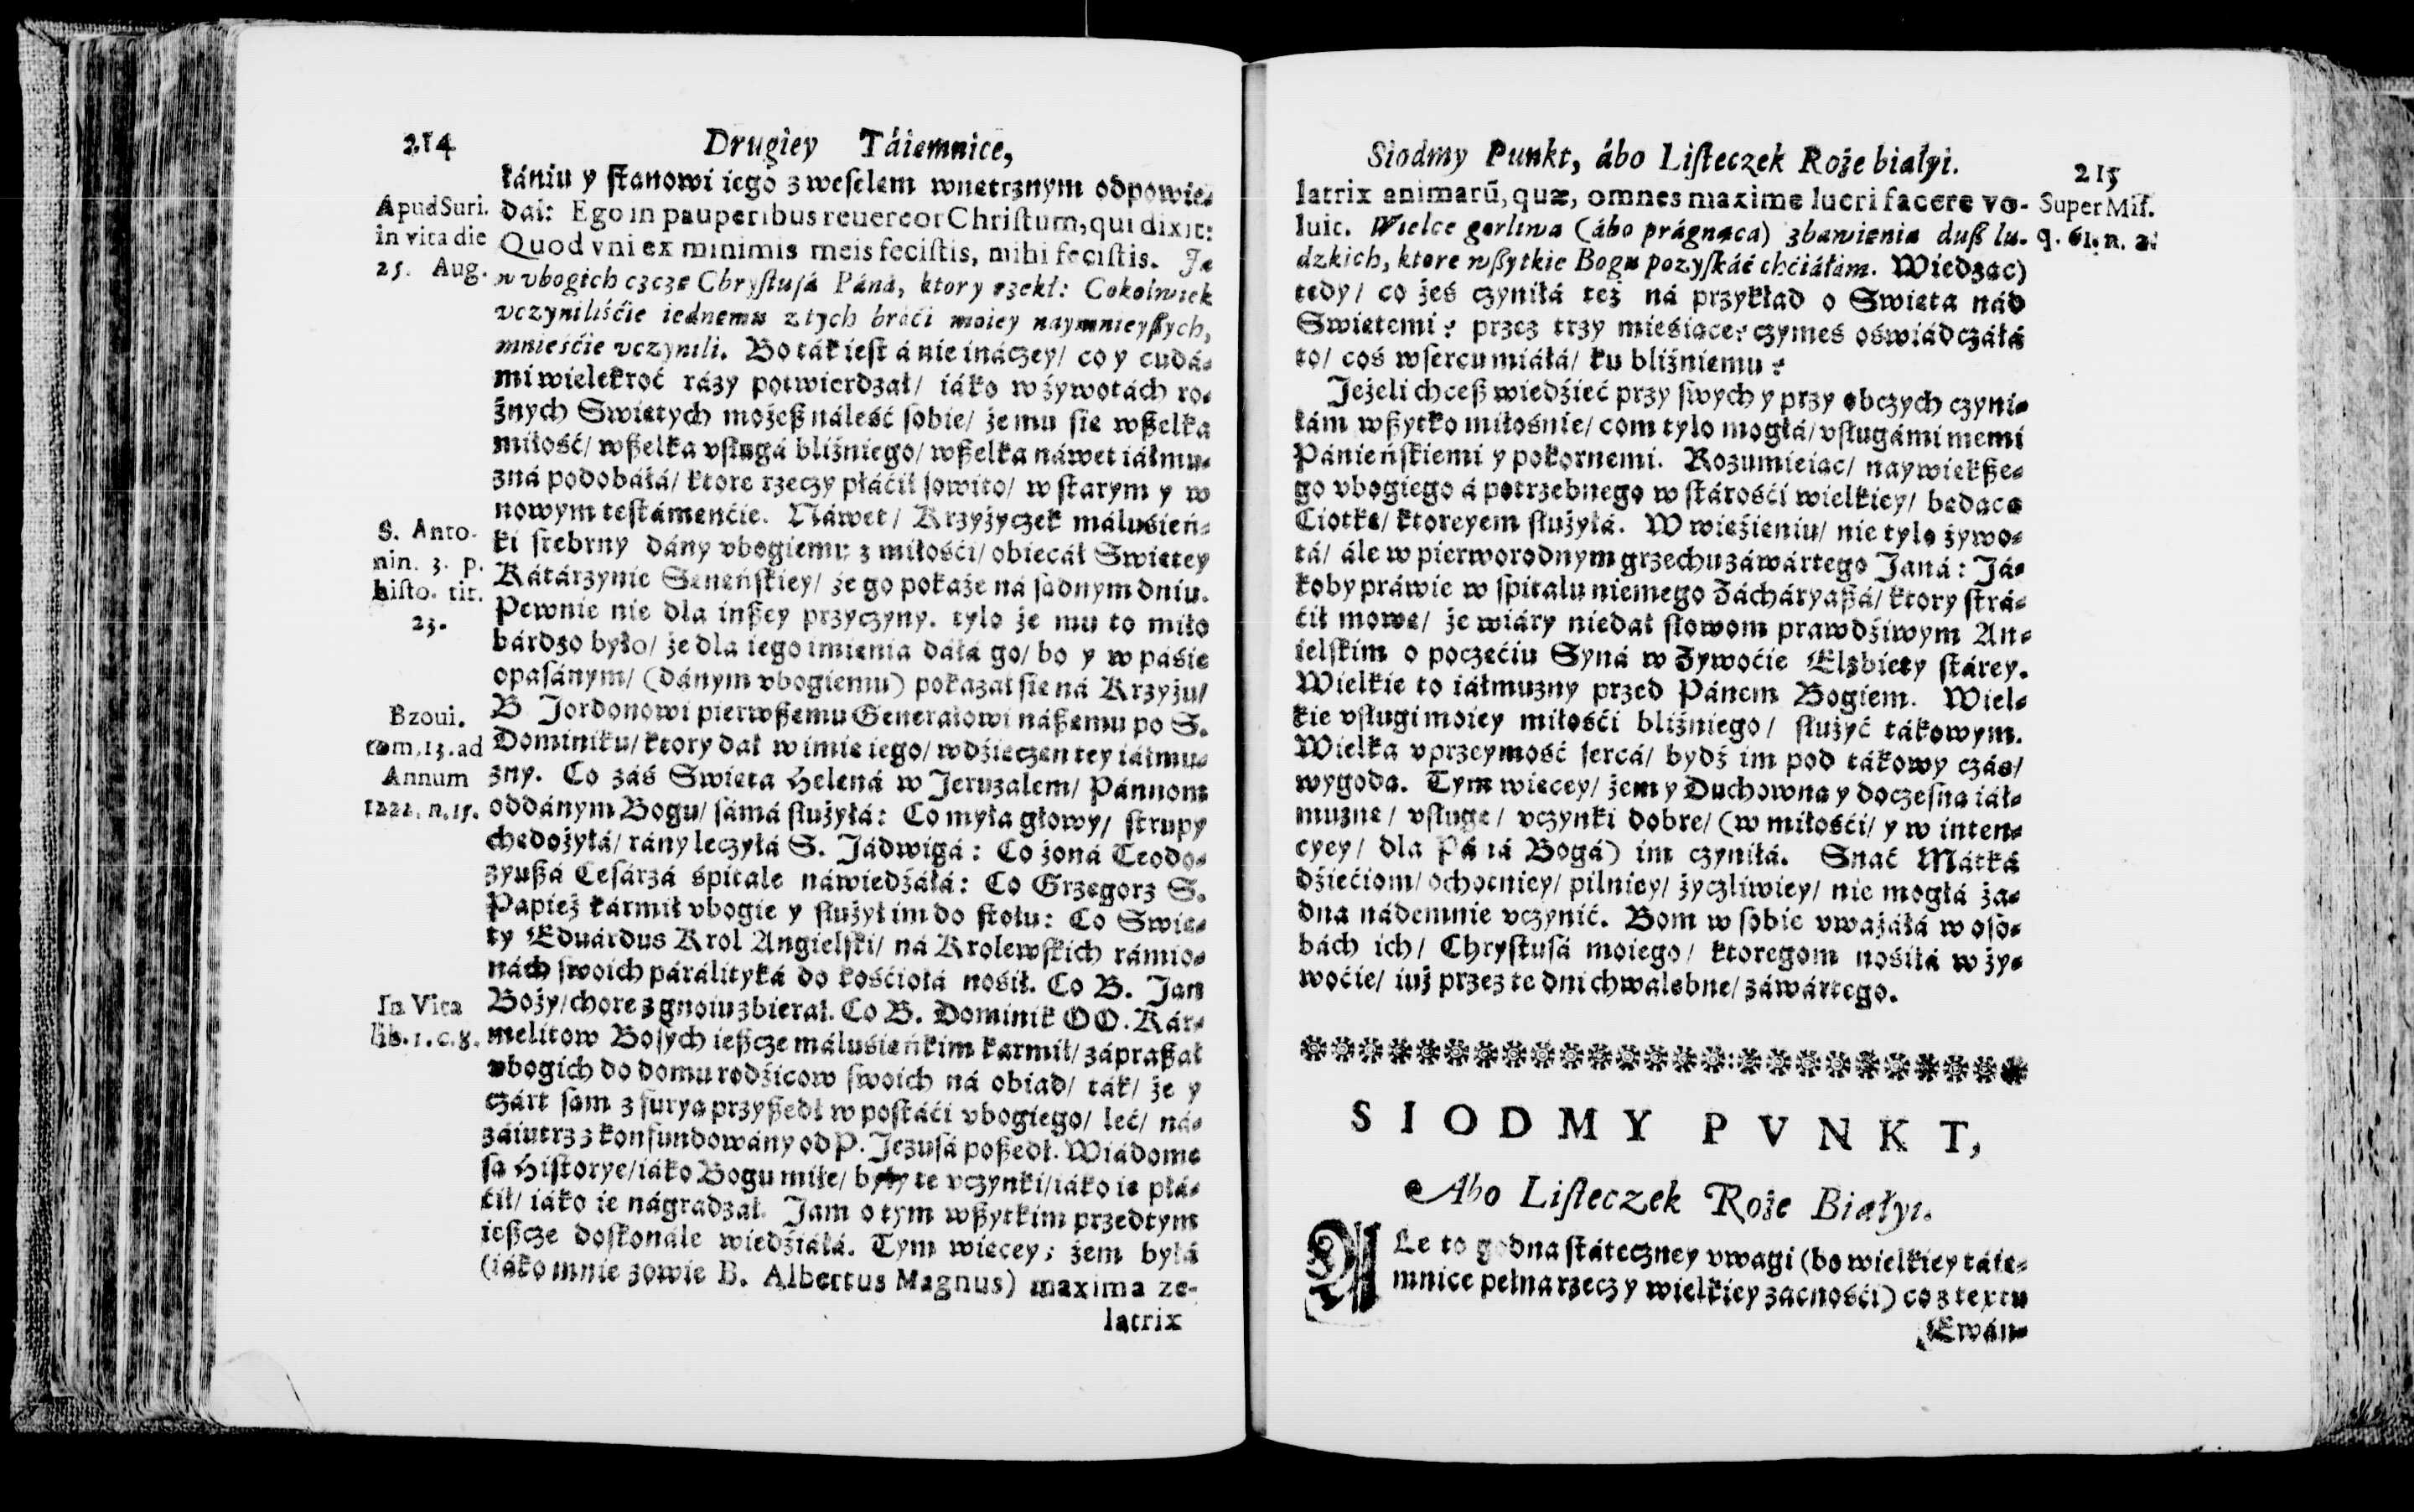 214
Drugiey Táiemnice,
kániu y stanowi iego z weselem wnetrznym odpowie-
dał: Ego in pauperibus reuereor Christum, qui dixit:
Quod vni ex minimis meis fecistis, mihi fecistis. Ja
w vbogich czcze Chrystusá Páná, ktory rzekł: Cokolwiek
vczyniliśćie iednemu z tych bráći moiey naymnieyszych,
mnieśćie vczynili. Bo ták iest á nie ináczey/ co y cudá-
mi wielekroć rázy potwierdzał/ iáko w żywotách ro-
żnych Swiętych możesz náleść sobie/ że mu sie wszelka
miłość/ wszelka vsługá bliźniego/ wszelka náwet iáłmu-
zná podobáłá/ ktore rzeczy płáćił sowito/ w starym y w
nowym testámenćie. Náwet/ Krzyżyczek málusień-
ki srebrny dány vbogiemu z miłośći/ obiecał Swiętey
Kátárzynie Seneńskiey/ że go pokaże ná sądnym dniu.
Pewnie nie dla inszey przyczyny. tylo że mu to miło
bárdzo było/ że dla iego imienia dáłá go/ bo y w páśie
opasánym/ (dánym vbogiemu) pokazał sie ná Krzyżu/
B Jordonowi pierwszemu Generałowi nászemu po S.
Dominiku/ ktory dał w imię iego/ wdźięczen tey iáłmu-
zny. Co záś Swięta Helená w Jeruzalem/ Pánnom
oddánym Bogu/ sámá służyłá: Co myła głowy/ strupy
chędożyłá/ rány leczyłá S. Jádwigá: Co żoná Teodo-
zyuszá Cesárzá śpitale náwiedźáłá: Co Grzegorz S.
Papież kármił vbogie y służył im do stołu: Co Swię-
ty Eduárdus Krol Angielski/ ná Krolewskich rámio-
nách swoich párálityká do kośćiołá nośił. Co B. Jan
Boży/ chore z gnoiu zbierał. Co B. Dominik OO. Kár-
melitow Bosych ieszcze málusieńkim karmił/ zápraszał
vbogich do domu rodźicow swoich ná obiad/ ták/ że y
czárt sam z furyą przyszedł w postáći vbogiego/ leć/ ná-
záiutrz zkonfundowány od P. Jezusá poszedł. Wiádome
są Historye/ iáko Bogu miłe/ były te vczynki/ iáko ie płá-
ćił/ iáko ie nágradzał. Jam o tym wszytkim przedtym
ieszcze doskonále wiedźiáłá. Tym więcey; żem byłá
(iáko mnie zowie B. Albertus Magnus) maxima ze-
latrix
Apud Suri.
in vita die
25. Aug.
S. Anto-
nin. 3. p.
histo. tit.
23.
Bzoui.
tom. 13. ad
Annum
In Vita
lib. 1. c. 8.
Siodmy Punkt, ábo Listeczek Roże białyi.
215
latrix animarũ, quæ, omnes maxime lucri facere vo-
luit. Wielce gorliwa (ábo prágnąca) zbawienia dusz lu-
dzkich, ktore wszytkie Bogu pozyskáć chćiáłám. Wiedząc)
tedy/ co żeś czyniłá też ná przykład o Swięta nád
Swiętemi? przez trzy mieśiące? czymeś oświádczáłá
to/ coś w sercu miáłá/ ku bliźniemu?
Jeżeli chcesz wiedźieć przy swych y przy obczych czyni-
łám wszytko miłośnie/ com tylo mogłá/ vsługámi memi
Pánieńskiemi y pokornemi. Rozumieiąc/ naywiększe-
go vbogiego á potrzebnego w stárośći wielkiey/ będącą
Ciotkę/ ktoreyem służyłá. W więźieniu/ nie tylo żywo-
tá/ ále w pierworodnym grzechu záwártego Janá: Já-
koby práwie w spitalu niemego Zácháryaszá/ ktory strá-
ćił mowę/ że wiáry nie dał słowom prawdźiwym An-
ielskim o poczęćiu Syná w Zywoćie Elzbiety stárey.
Wielkie to iáłmuzny przed Pánem Bogiem. Wiel-
kie vsługi moiey miłośći bliźniego/ służyć tákowym.
Wielka vprzeymość sercá/ bydź im pod tákowy czás/
wygodą. Tym więcey/ żem y Duchowną y doczesną iáł-
muznę/ vsługę/ vczynki dobre/ (w miłośći/ y w inten-
cyey/ dla Páná Bogá) im czyniłá. Snać Mátká
dźiećiom/ ochotniey/ pilniey/ życzliwiey/ nie mogłá żá-
dna nádemnie vczynić. Bom w sobie vważáłá w oso-
bách ich/ Chrystusá moiego/ ktoregom nośiłá w ży-
woćie/ iuż przez te dni chwalebne/ záwártego.
Super Mis.
q. 61. n. 2.
SIODMY PVNKT,
Abo Listeczek Roże Białyi.
ALe to godna státeczney vwagi (bo wielkiey táie-
mnice pełna rzecz y wielkiey zacnośći) co z textu
Ewán-